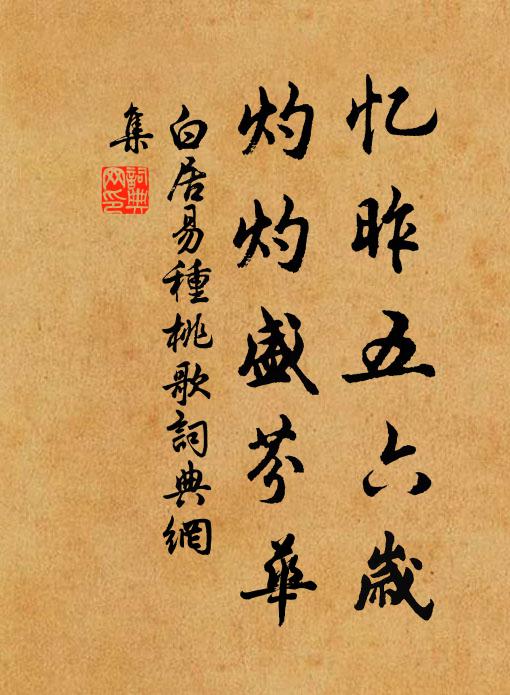 忆昨五六歲
灼灼盛芬華
白居易種桃歌詞典網
集
詞典
网印